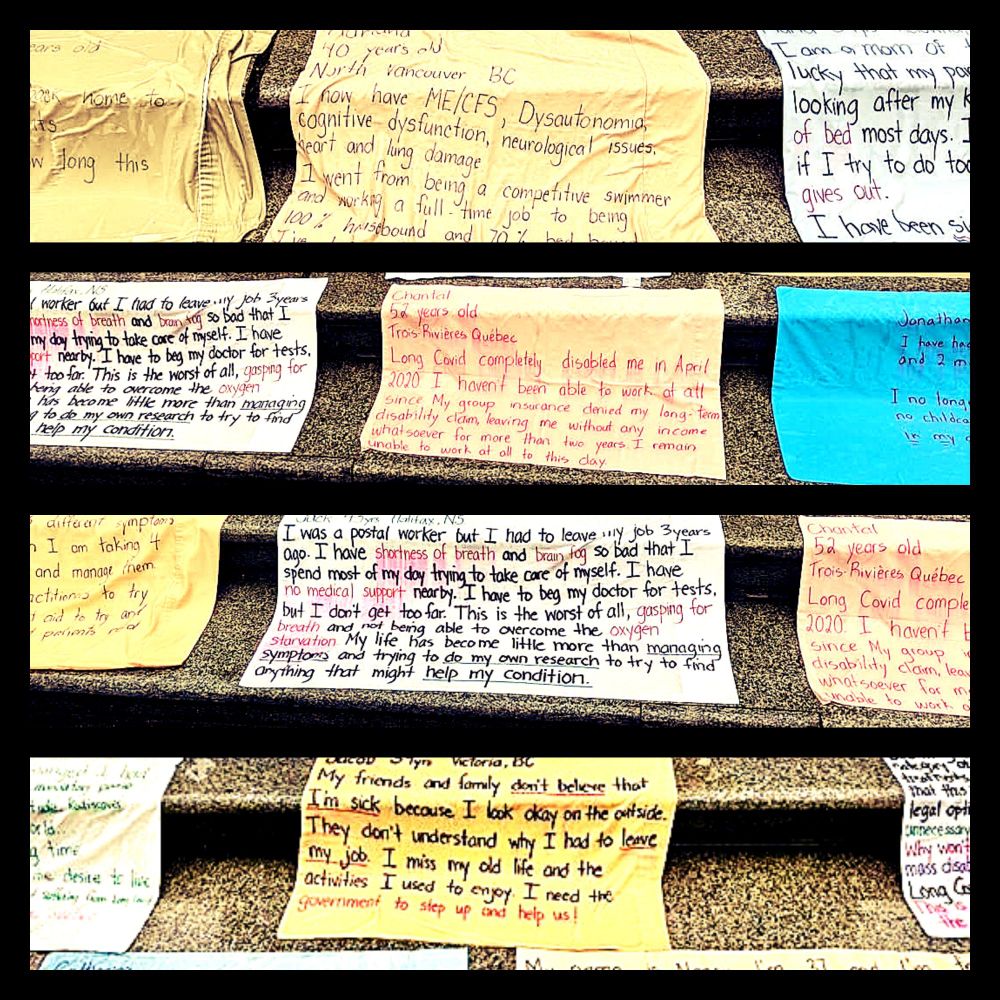 ears old
home to
w long this
Adriana
40 years old
North Vancouver BC
I now have ME/CFS, Dysautonomia,
cognitive dysfunction, neurological issues,
heart and lung damage
I went from being a competitive swimmer
and working a full-time job to being
100% housebound and 70% bed bound
I am a mom of
lucky that my par
looking after my k
of bed most days. I
if I try to do too
gives out.
I have been si
Halifax, NS
l worker but I had to leave my job 3 years
hortness of breath and brain fog so bad that I
my day trying to take care of myself. I have
port nearby. I have to beg my doctor for tests,
t too far. This is the worst of all, gasping for
being able to overcome the oxygen
has become little more than managing
g to do my own research to try to find
help my condition.
Chantal
52 years old
Trois-Rivières Québec
Long Covid completely disabled me in April
2020 I haven't been able to work at all
since My group insurance denied my long-term
disability claim, leaving me without any income
whatsoever for more than two years. I remain
unable to work at all to this day.
Jonathan
I have had
and 2 m
I no long
no childca
in my
different symptoms
I am taking 4
and manage them.
actitioners to try
aid to try and
Jack 43yrs Halifax, NS
I was a postal worker but I had to leave my job 3 years
ago. I have shortness of breath and brain fog so bad that I
spend most of my day trying to take care of myself. I have
no medical support nearby. I have to beg my doctor for tests,
but I don't get too far. This is the worst of all, gasping for
breath and not being able to overcome the oxygen
starvation My life has become little more than managing
symptoms and trying to do my own research to try to find
anything that might help my condition.
Chantal
52 years old
Trois-Rivières Québec
Long Covid comple
2020 I haven't b
since My group
disability claim, leav
whatsoever for m
unable to work a
time
me desire to live
Jacob Victoria, BC
My friends and family don't believe that
I'm sick because I look okay on the outside.
They don't understand why I had to leave
my job. I miss my old life and the
activities I used to enjoy. I need the
government to step up and help us!
that this
legal opti
unnecessary
Why won't
mass disab
Long Co
This is
the
My name is I'm 37 and I'm